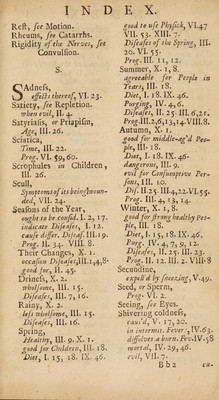 INDEX.
Rest, see Motion.
Rheums, see Catarrhs.
Rigidity of the Nerves, see
Convulsion.
S.
SAdness,
effects thereof, VI. 23.
Satiety, see Repletion.
when evil, II. 4.
Satyriasis, or Priapism,
Age, III. 26.
Sciatica,
Time, III. 22.
Prog. VI. 59, 60.
Scrophules in Children,
III. 26.
Scull,
Symptoms of its being wounded, VII. 24.
Seasons of the Year,
ought to be consid. I. 2, 17.
indicate Diseases, I. 12.
cause differ. Diseas. III. 19.
Prog. II. 34. VIII. 8.
Their Changes, X. 1.
occasion Diseases, III. 1, 4, 8.
good for, II. 45.
Driness, X. 2.
wholsome, III. 15.
Diseases, III. 7, 16.
Rainy, X. 2.
less wholsome, III. 15.
Diseases, III. 16.
Spring,
Healthy, III. 9. X. 1.
good for Children, III. 18.
Diet, I. 15, 18. IX. 46.
good to use Physick, VI. 47
VII. 53. XIII. 7.
Diseases of the Spring, III.
20. VI. 55.
Prog. III. 11, 12.
Summer, X. 1, 8.
agreeable for People in
Years, III. 18.
Diet, I. 18. IX. 46.
Purging, IV. 4, 6.
Diseases, II. 25. III. 6, 21.
Autumn, X. 1.
good for middle-ag'd People, III. 18.
Diet, I. 18. IX. 46.
dangerous, III. 9.
evil for Consumptive Persons, III. 10.
Prog. III. 4, 13, 14.
Winter, X. 1, 8.
good for strong healthy People, III. 18.
Diet, I. 15, 18. IX. 46.
Purg. IV. 4, 7, 9, 12.
Diseases, II. 25. III. 23.
Prog. II. 12. III. 2. VIII. 8
Secundine,
expell'd by sneezing, V. 49.
Seed, or Sperm,
Prog. VI. 2.
Seeing, see Eyes.
Shivering coldness,
caus'd, V. 17, 20.
in intermit. Fever, IV. 63.
dissolves a burn. Fev. IV. 58
mortal, IV. 29, 46.
evil, VII. 7.
B b 2